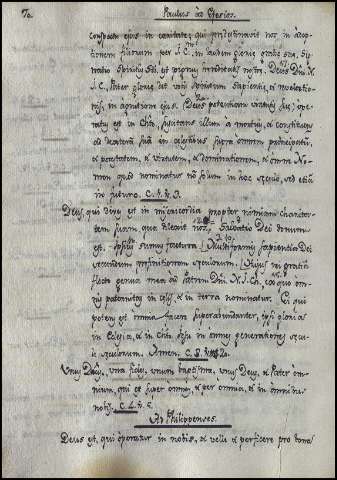 70. Paulus ad Efesios.
conspectu ejus in caritate; qui prædestinavit nos in adop
tionem filiorum per J. C. in laudem gloriæ gratiæ suæ,
Spiritus est pignus hæreditatis nostræ. Deus Dni N.
J. C., Pater gloriæ det vobis Spiritum sapientiæ, et revelatio
nis, in agnitione ejus. Deus potentiam virtutis suæ ope
ratus est in Chro, suscitans illum à mortuis, et constituens
ad dexteram suam in celestibus supra omnem principatum,
et potestatem, et virtutem, et dominationem, et omne No
men quod nominatur non solum in hoc sæculo, sed etiam
in futuro. C. 1.
Deus, qui dives est in misericordia propter nimiam charita
tem suam, qua dilexit nos. Salvatio Dei donum
est. Ipsius sumus factura. Multiformis sapientia Dei
secundum præfinitionem sæculorum. Hujus rei gratia
flecto genua mea ad Patrem Dni N. J. Ch. ex quo om
nis paternitas in cœlis et in terra nominatur. Ei qui
potens est omnia facere superabundanter, ipsi gloria
in Eclesia, et in Chro Jesu in omnes generationes sæcu
li sæculorum. Amen. C. 3.
Unus Dnus, una fides, unum baptisma, unus Deus, et Pater om
nium, qui est super omnes, et per omnia, et in omnibus
nobis. C. 4.
Ad Philippenses.
Deus est, qui operatur in nobis, et velle et perficere pro bona